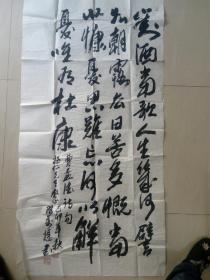 對酒當歌人生幾何譬
如朝露去日苦多慨當
以慷憂思難忘何以解
憂唯有杜康
曹孟德詩句